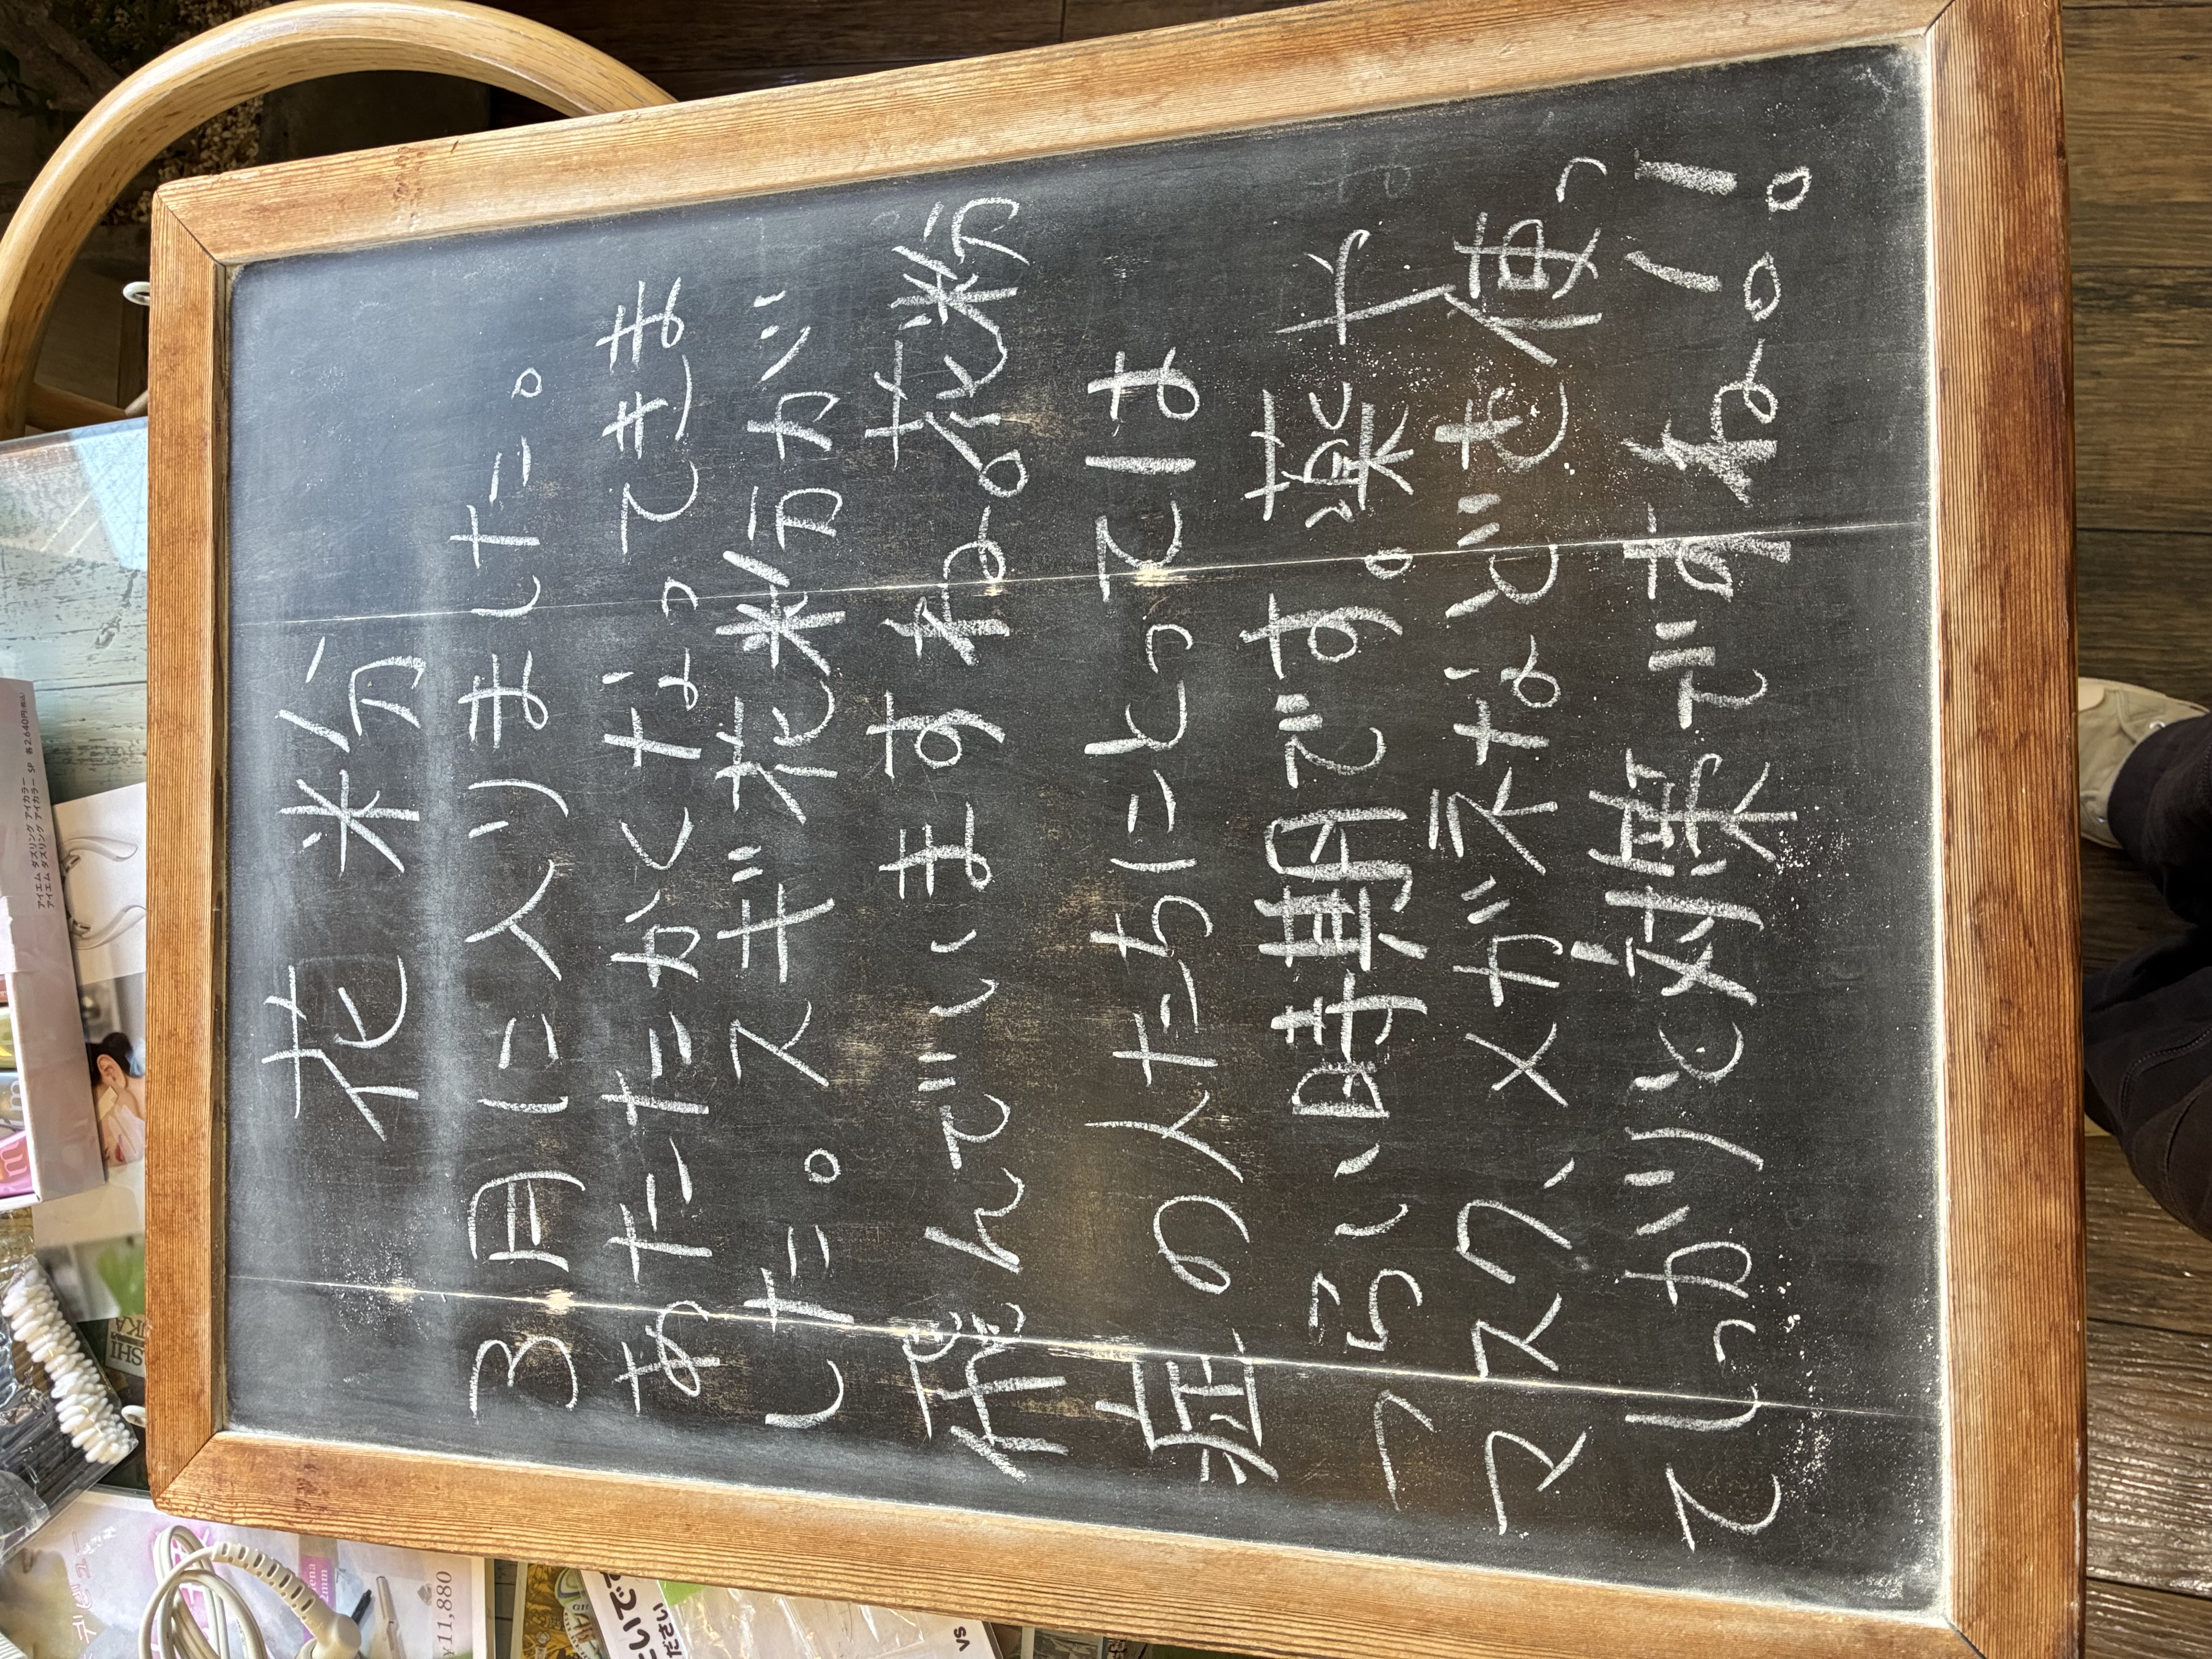 花粉
3月に入りました。
あたたかくなってきま
した。スギ花粉が
飛んでいますね。花粉
症の人たちにとっては
つらい時期です。薬や
マスク、メガネなども使っ
てしっかりと対策ですね!!
11,880
ださい
VS